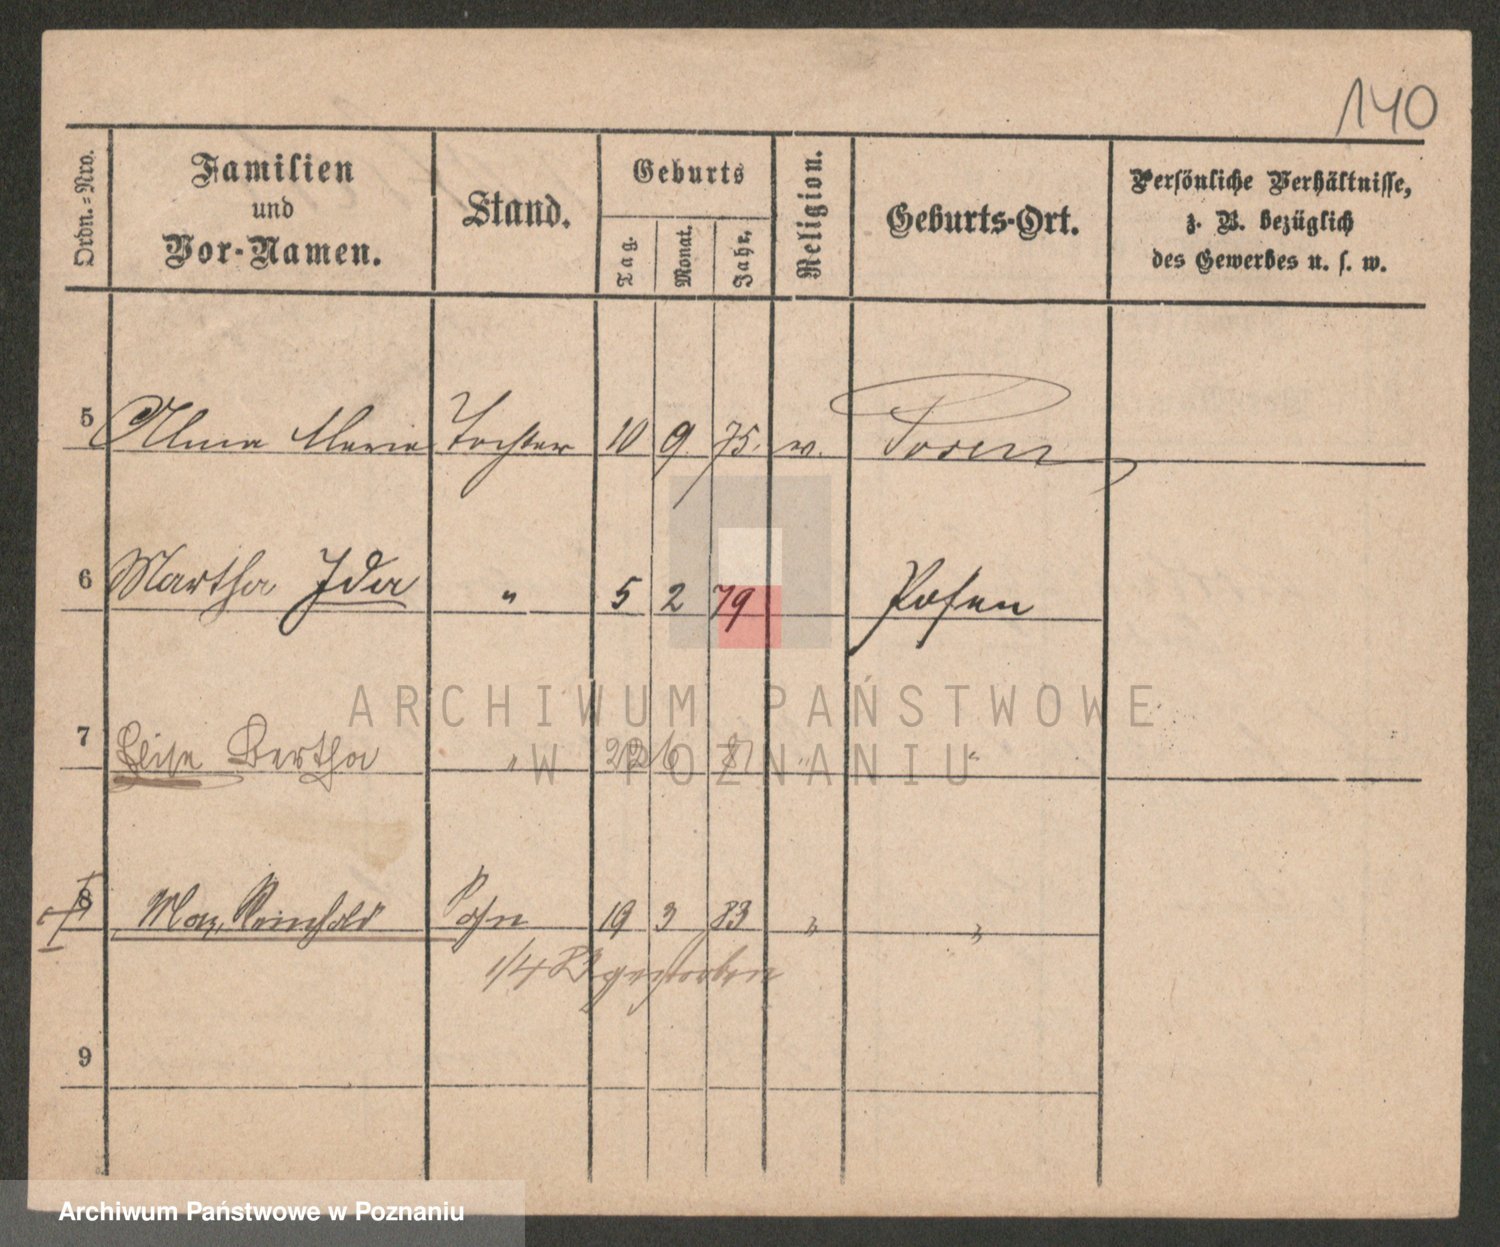 140
Ordn.-Nro.
Familien
und
Vor-Namen.
Stand.
Geburts
Tag.
Monat.
Jahr.
Religion.
Geburts-Ort.
Persönliche Verhältnisse,
z. B. bezüglich
des Gewerbes u. s. w.
5 Marie Tochter 10 9. 75. Posen
6 Martha Ida " 5 2 79 Posen
7 Elise Bertha " 22 6 " "
8 Max Reinhold 19 3 83 " "
gestorben
9
ARCHIWUM PAŃSTWOWE
W POZNANIU
Archiwum Państwowe w Poznaniu